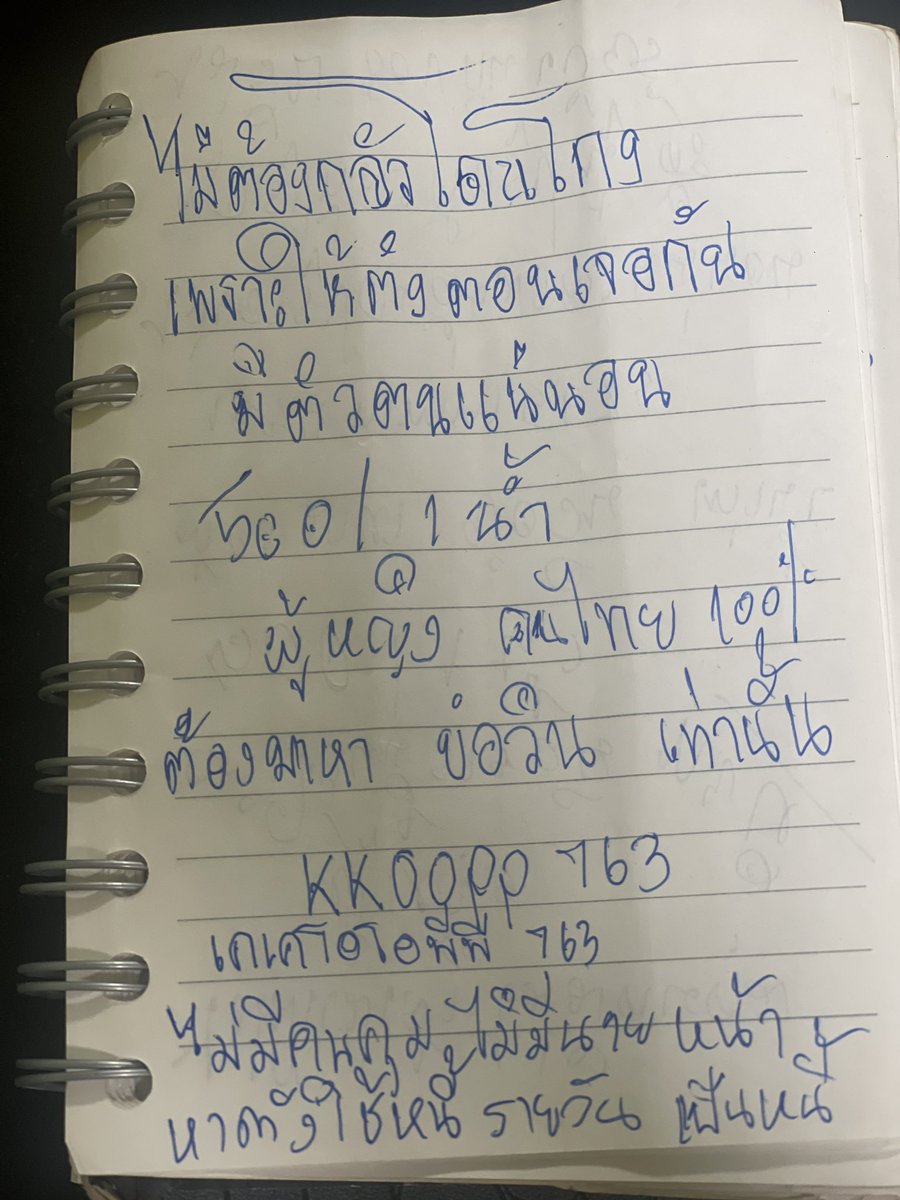 ไม่ต้องกลัวโดนโกง
เพราะให้ตังตอนเจอกัน
มีตัวตนแน่นอน
1 น้ำ
ผู้หญิง คนไทย 100%
ต้องมาหา ขอวีน เท่านั้น
KKOOPP 763
เคเคโอโอพีพี 763
ไม่มีคนคุม ไม่มีนายหน้า
หาตังใช้หนี้ รายวัน เป็นหนี้